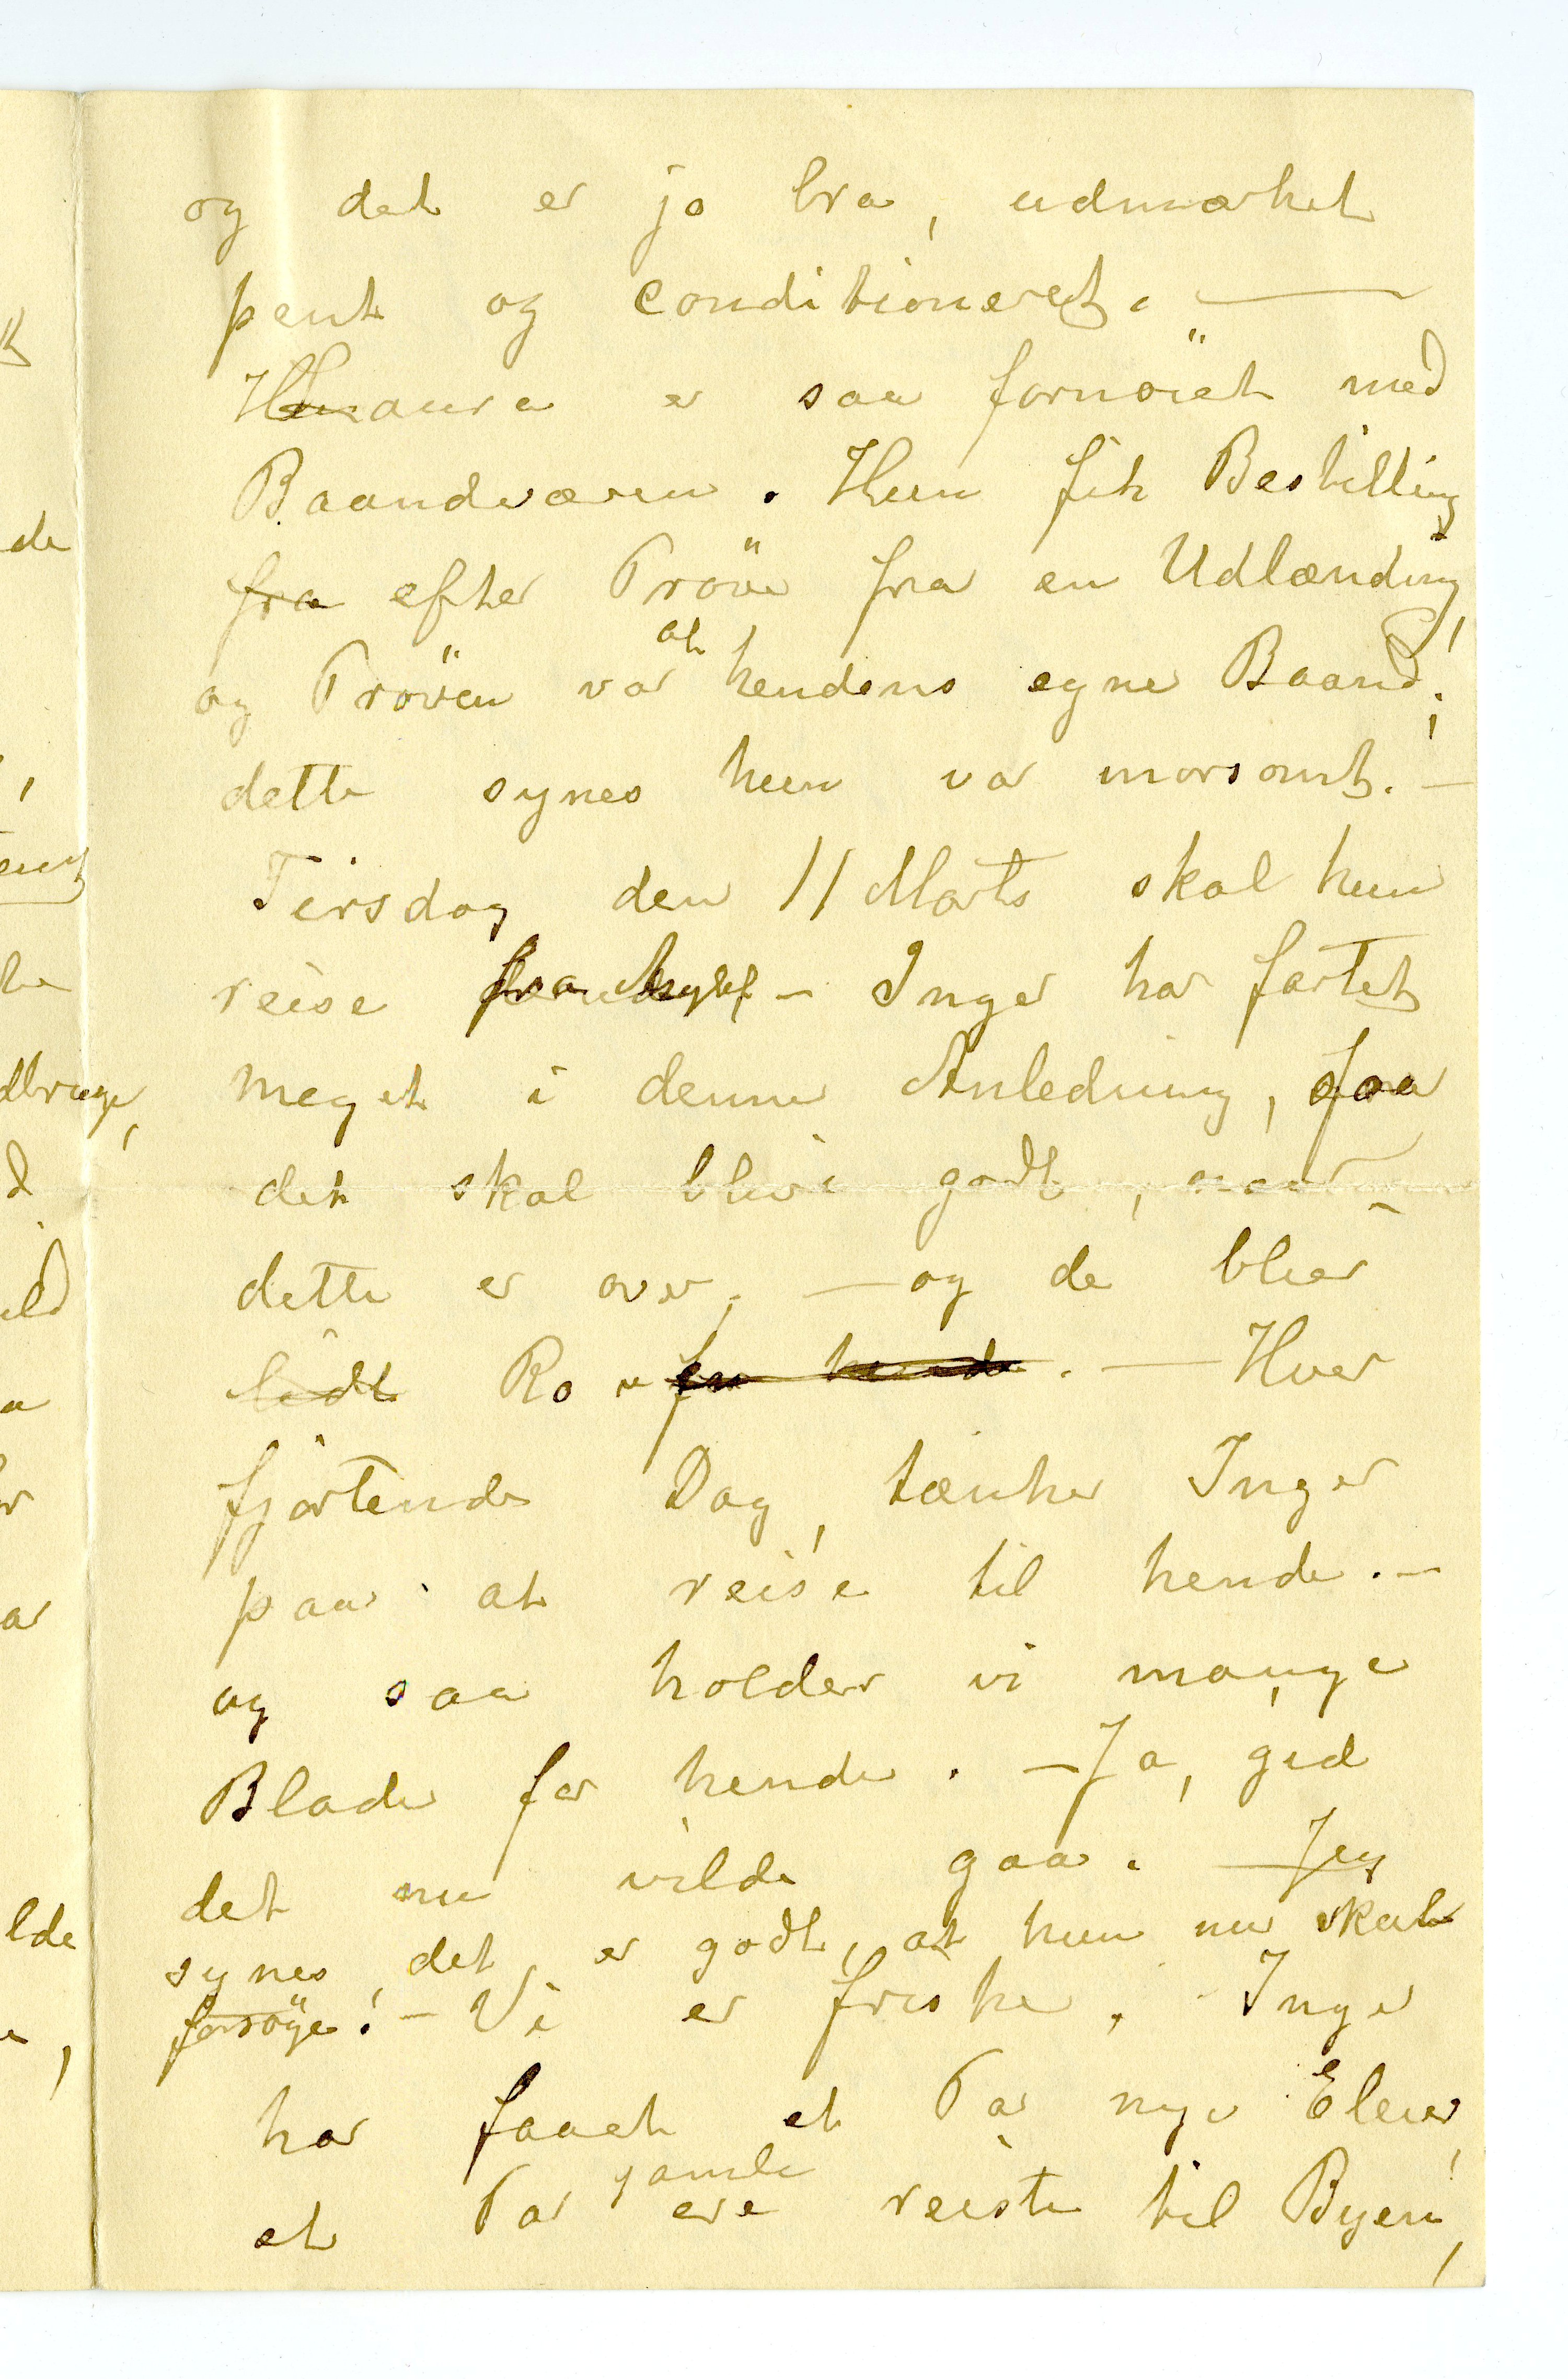 og det er jo bra, udmærket
pent og conditioneret. —
Laura er saa fornöiet med
Baandvæven. Hun fik Bestilling
fra efter Pröve fra en Udlænding,
og Pröven var at hendens egne Baand;
dette synes hun var morsomt. —
Tirsdag den 11 Marts skal hun
reise – Inger har fartet
meget i denne Anledning, saa
det skal blive godt, naar
dette er over, — og de blier
lidt Ro for hende. — Hver
fjortende Dag, tænker Inger
paa at reise til hende. –
og saa holder vi mange
Blade for hende. – Ja, gid
det nu vilde gaa. — Jeg
synes det er godt, at hun nu skal
forsöge! – Vi er friske. Inger
har faaet et Par nye Elever,
et Par gamle ere reiste til Byen,
de
dbruge,
d
ild
a
r
ar
lde